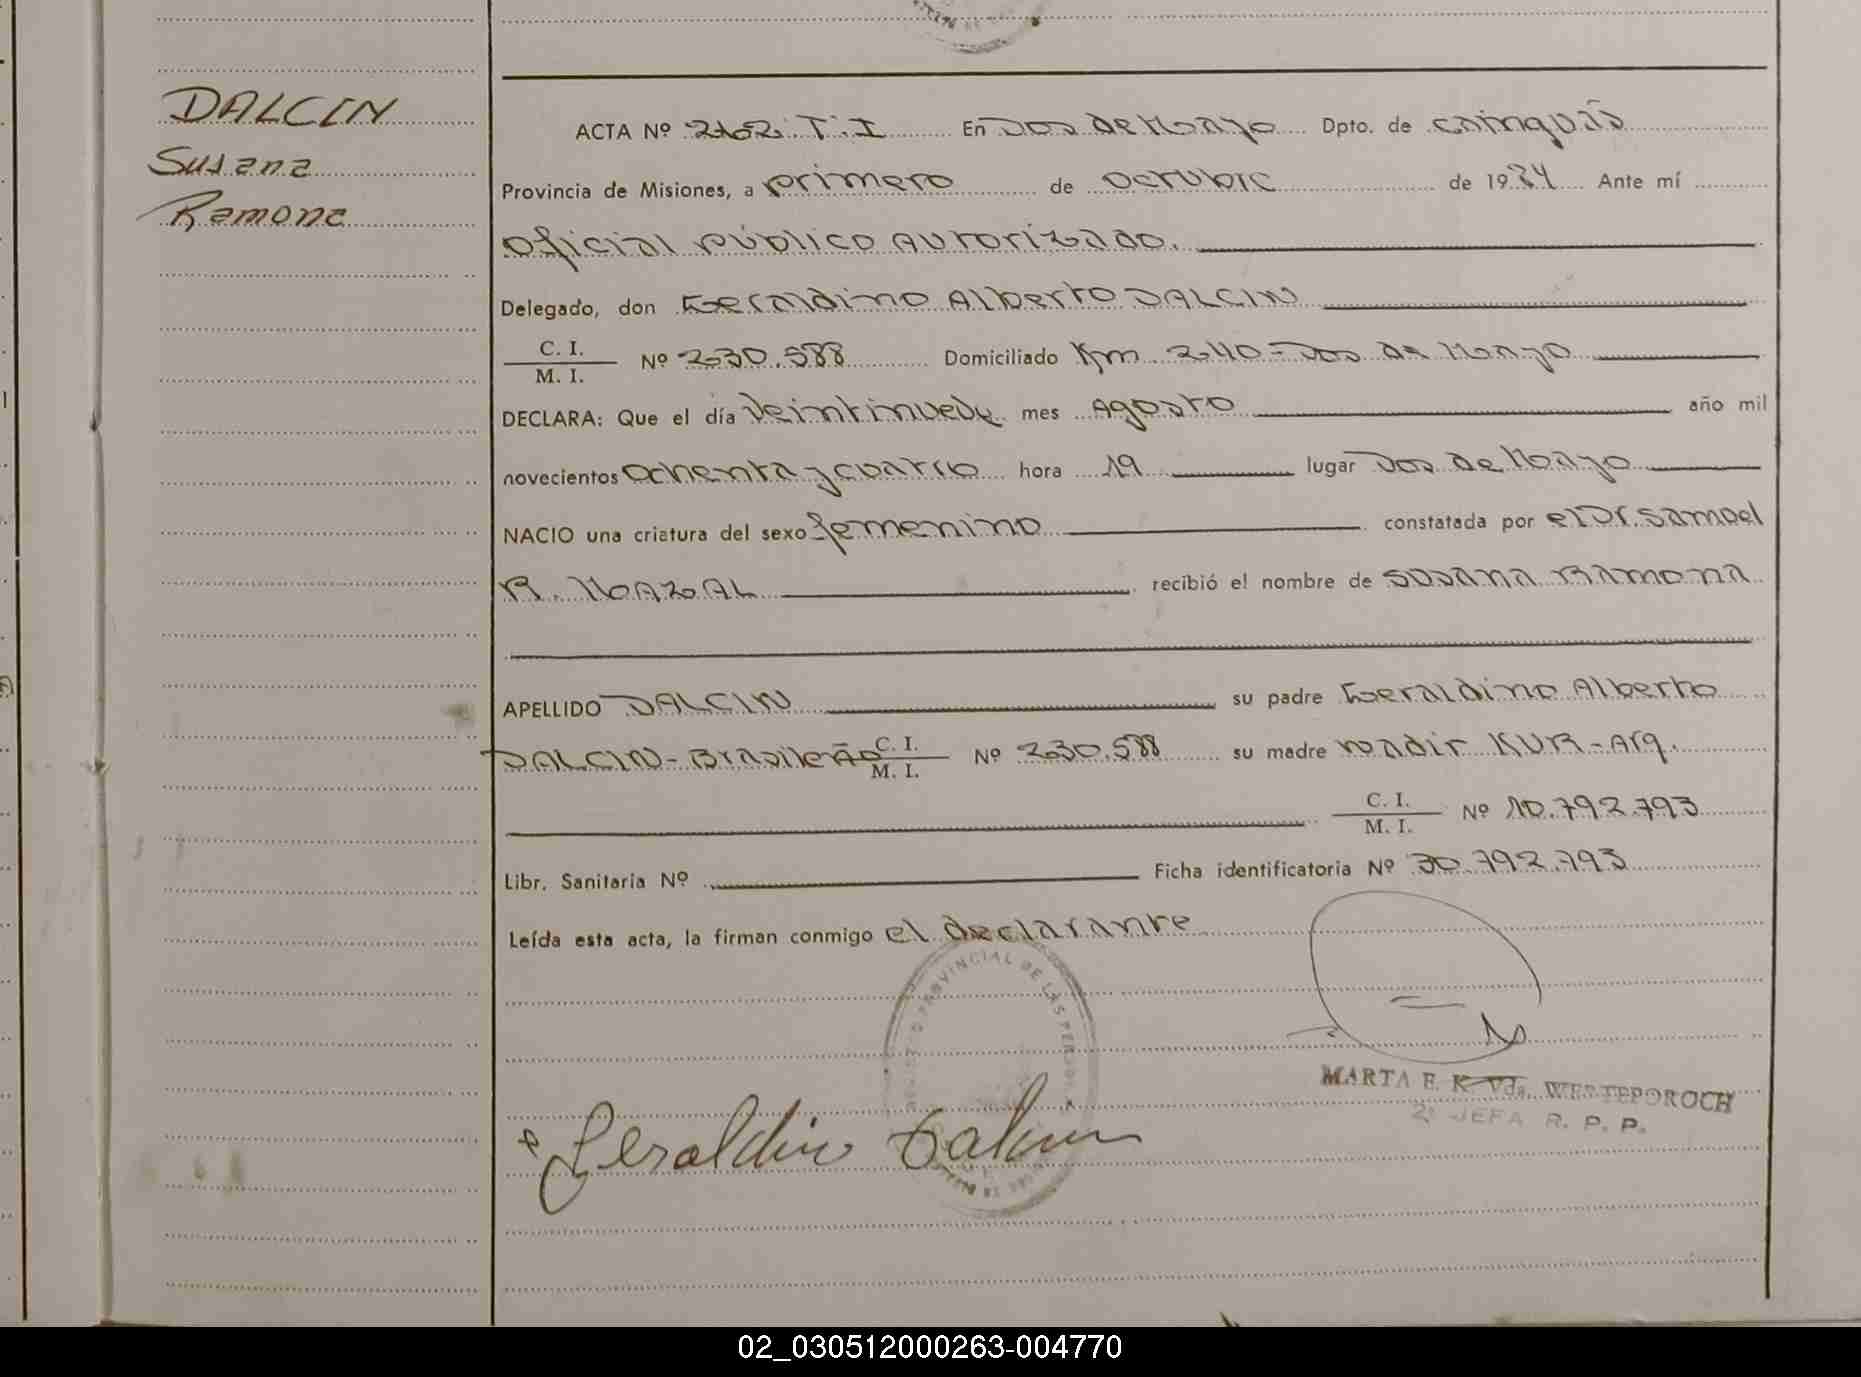 DALCIN
Susana
Ramona
ACTA Nº 262 T: I En Dos de Mayo Dpto. de Cainguás
Provincia de Misiones, a primero de octubre de 1984 Ante mí
Oficial Público Autorizado.
Delegado, don Geraldino Alberto DALCIN
C. I.
M. I. Nº 230.588 Domiciliado Km 240-Dos de Mayo
DECLARA: Que el día veintinueve mes Agosto año mil
novecientos ochenta y cuatro hora 19 lugar Dos de Mayo
NACIO una criatura del sexo femenino constatada por el Dr. Samoel
R. recibió el nombre de SUSANA RAMONA
APELLIDO DALCIN su padre Geraldino Alberto
DALCIN-Brasileño C. I.
M. I. Nº 230.588 su madre Nadir KUR-Arg.
C. I.
M. I. Nº 10.792.793
Libr. Sanitaria Nº Ficha identificatoria Nº 30.792.793
Leída esta acta, la firman conmigo el declarante
PROVINCIAL DE LAS PERSONAS
MARTA E. K. Vda. WESTEPOROCH
2º JEFA R. P. P.
Geraldino Dalcin
02_030512000263-004770